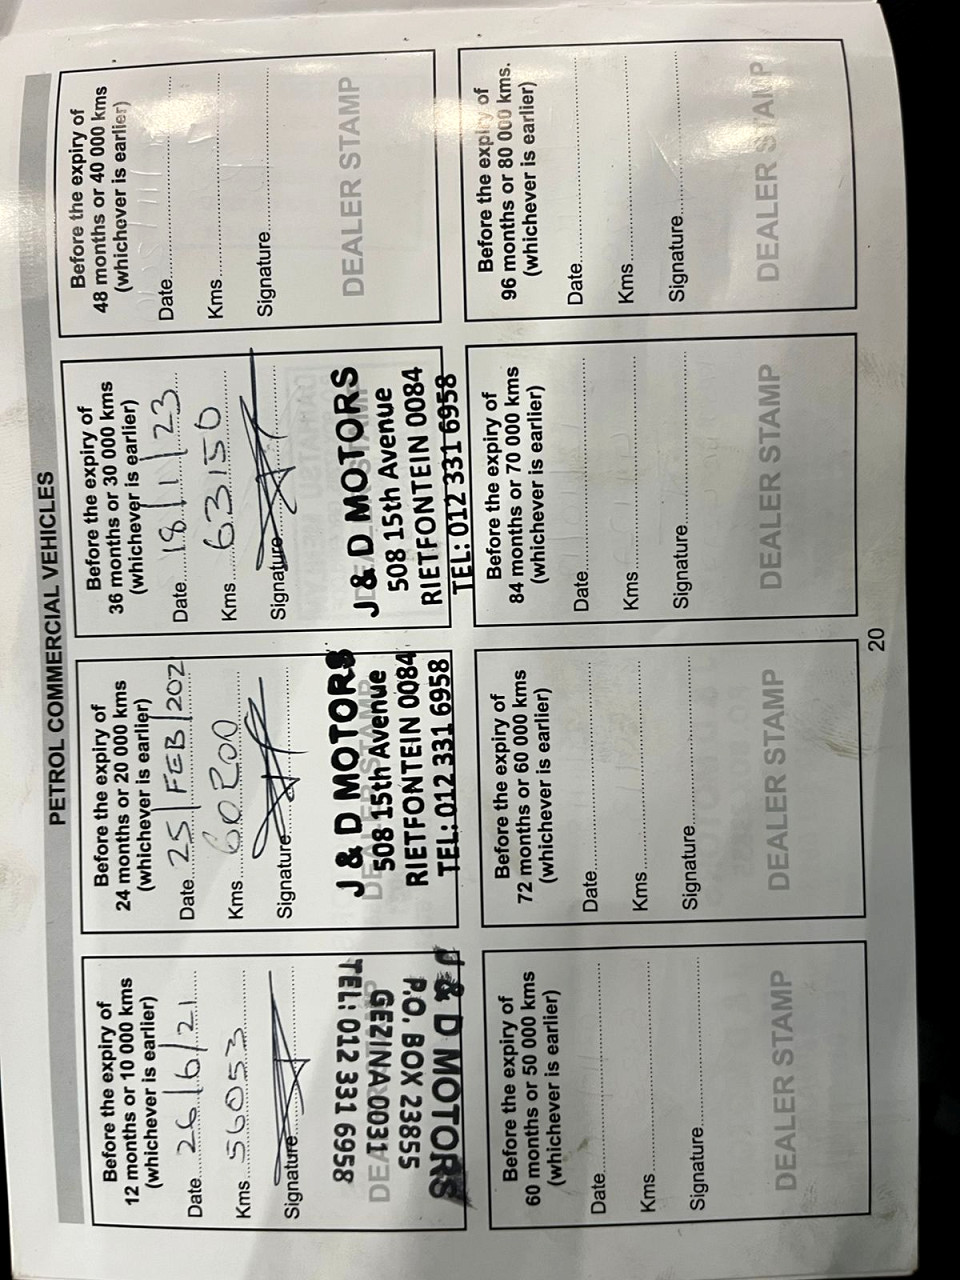 PETROL COMMERCIAL VEHICLES
Before the expiry of
12 months or 10 000 kms
(whichever is earlier)
Date 26/6/21
Kms 56053
Signature
DEALER STAMP
J & D MOTORS
P.O. BOX 23855
GEZINA 0031
TEL: 012 331 6958
Before the expiry of
24 months or 20 000 kms
(whichever is earlier)
Date 25/FEB/202
Kms 60200
Signature
DEALER STAMP
J & D MOTORS
508 15th Avenue
RIETFONTEIN 0084
TEL: 012 331 6958
Before the expiry of
36 months or 30 000 kms
(whichever is earlier)
Date 18/1/23
Kms 63150
Signature
DEALER STAMP
J & D MOTORS
508 15th Avenue
RIETFONTEIN 0084
TEL: 012 331 6958
Before the expiry of
48 months or 40 000 kms
(whichever is earlier)
Date
Kms
Signature
DEALER STAMP
Before the expiry of
60 months or 50 000 kms
(whichever is earlier)
Date
Kms
Signature
DEALER STAMP
Before the expiry of
72 months or 60 000 kms
(whichever is earlier)
Date
Kms
Signature
DEALER STAMP
Before the expiry of
84 months or 70 000 kms
(whichever is earlier)
Date
Kms
Signature
DEALER STAMP
Before the expiry of
96 months or 80 000 kms.
(whichever is earlier)
Date
Kms
Signature
DEALER STAMP
20